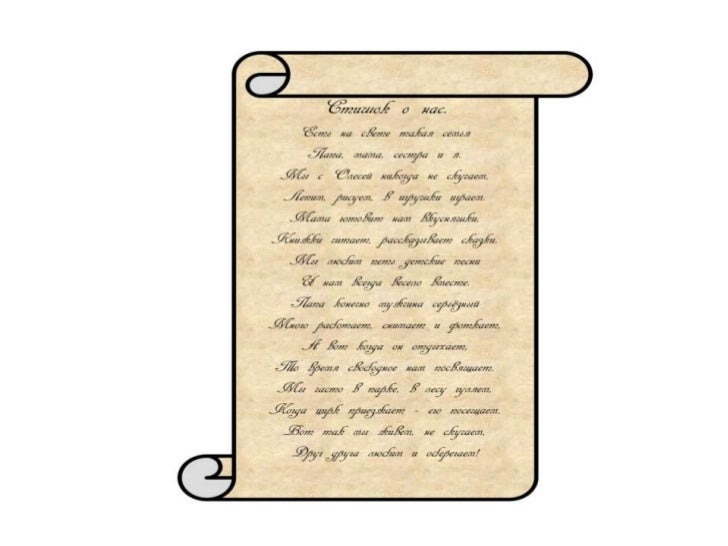 Стишок о нас.
Есть на свете такая семья
Папа, мама, сестра и я.
Мы с Олесей никогда не скучаем,
Лепим, рисуем, в игрушки играем.
Мама готовит нам вкусняшки,
Книжки читает, рассказывает сказки.
Мы любим петь детские песни
И нам всегда весело вместе.
Папа конечно мужчина серьёзный
Много работает, снимает и фоткает,
А вот когда он отдыхает,
То время свободное нам посвящает.
Мы часто в парке, в лесу гуляем,
Когда цирк приезжает - его посещаем.
Вот так мы живем, не скучаем,
Друг друга любим и оберегаем!